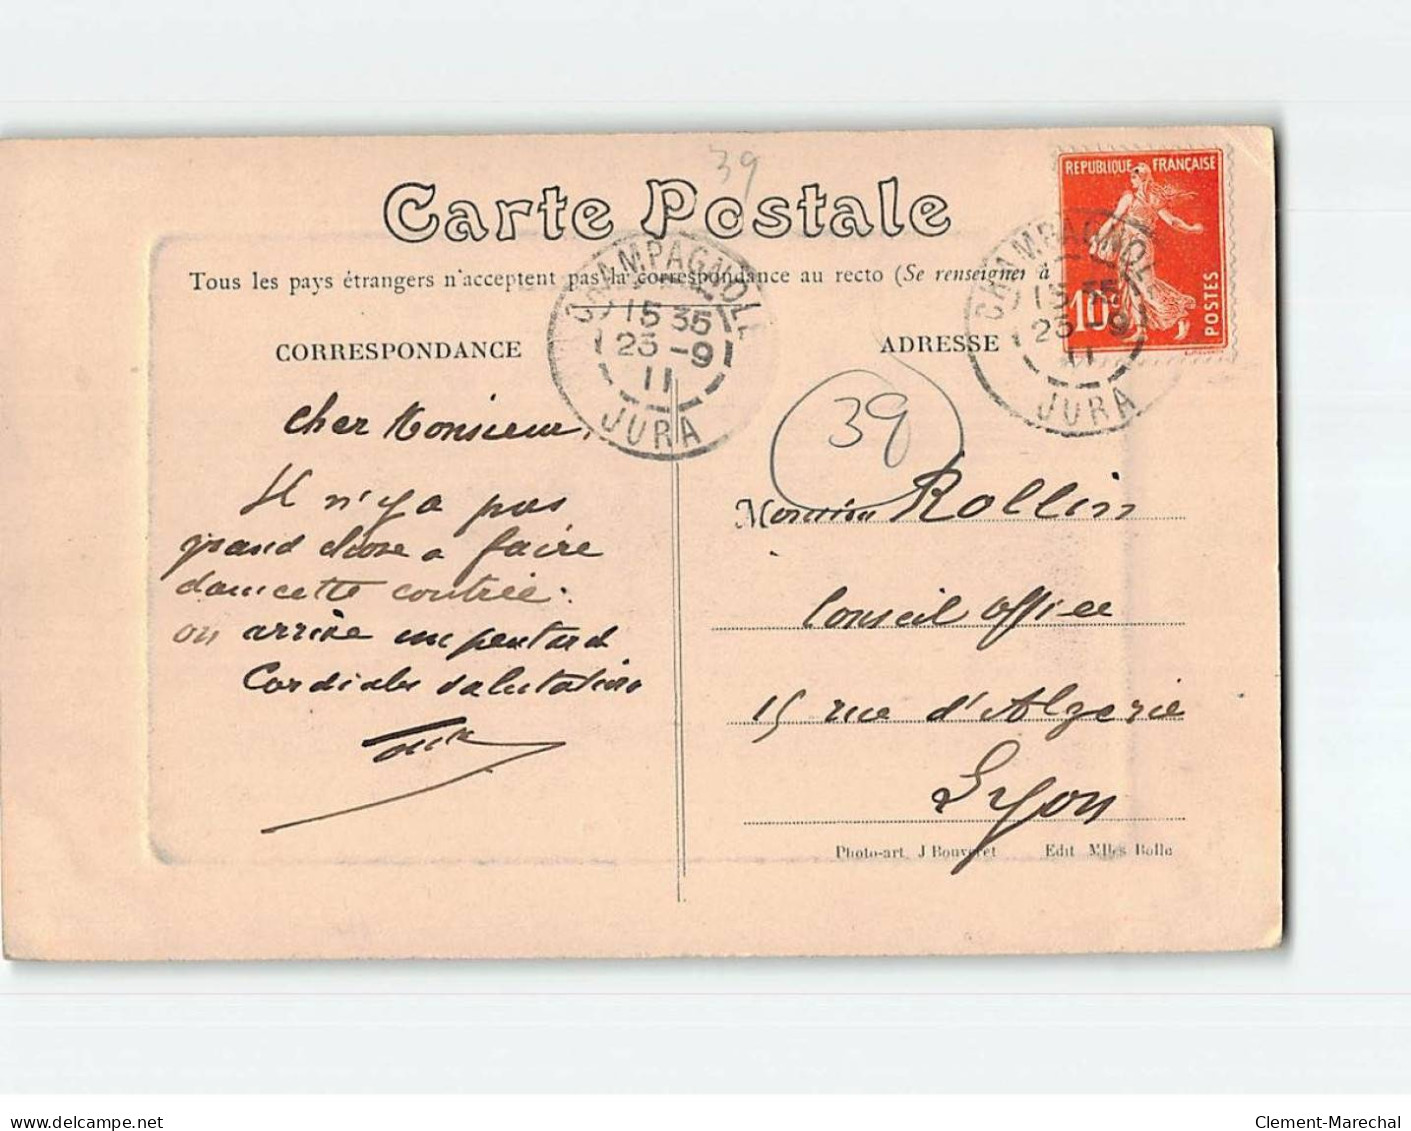 39
Carte Postale
Tous les pays étrangers n'acceptent pas la correspondance au recto (Se renseigner à
REPUBLIQUE FRANÇAISE
10c
POSTES
CHAMPAGNOLE
15 35
25 -9
11
JURA
CHAMPAGNOLE
15 35
25 -9
11
JURA
CORRESPONDANCE
Cher Monsieur,
Il n'y a pas
grand chose a faire
dans cette contrée.
on arrive un peu tard
Cordiales salutations
ADRESSE
39
Monsieur Rollin
Conseil Office
15 rue d'Algerie
Lyon
Photo-art. J Bouveret Edit Mlles Bolle
delcampe.net
Clement-Marechal